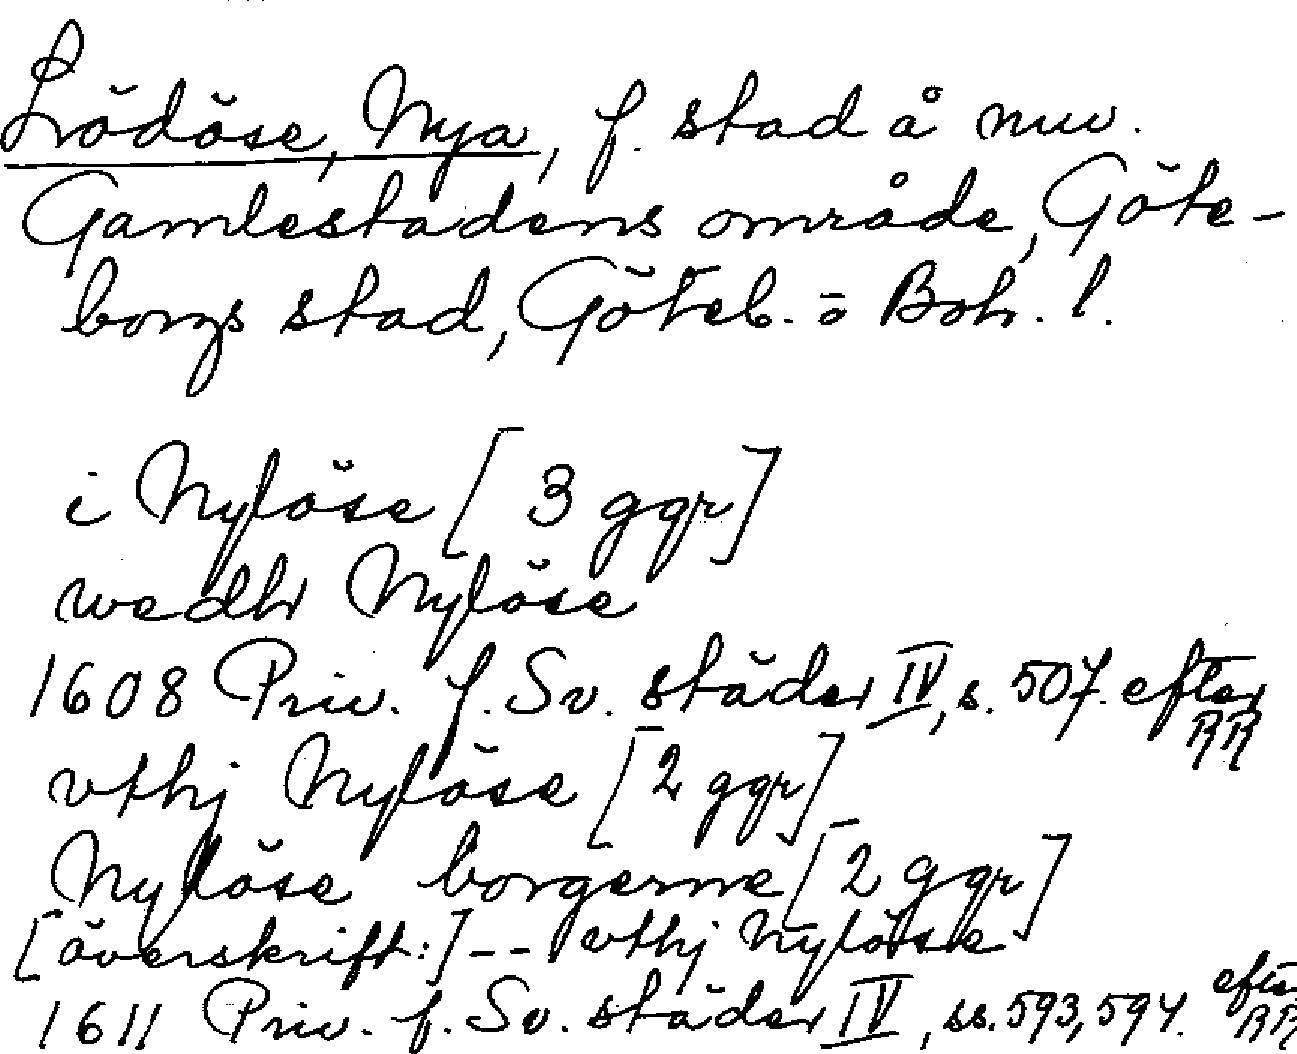 Lödöse, Nya, f. stad å nuv.
Gamlestadens område, Göte-
borgs stad, Göteb. o Boh. l.
i Nylöse [3 ggr]
wedh Nylöse
1608 Priv. f. Sv. städer IV, s. 507. efter RR
vthj Nylöse [2 ggr]
Nylöse borgerne [2 ggr]
[överskrift:] -- vthj Nylöse
1611 Priv. f. Sv. städer IV, ss. 593, 594. efter RR